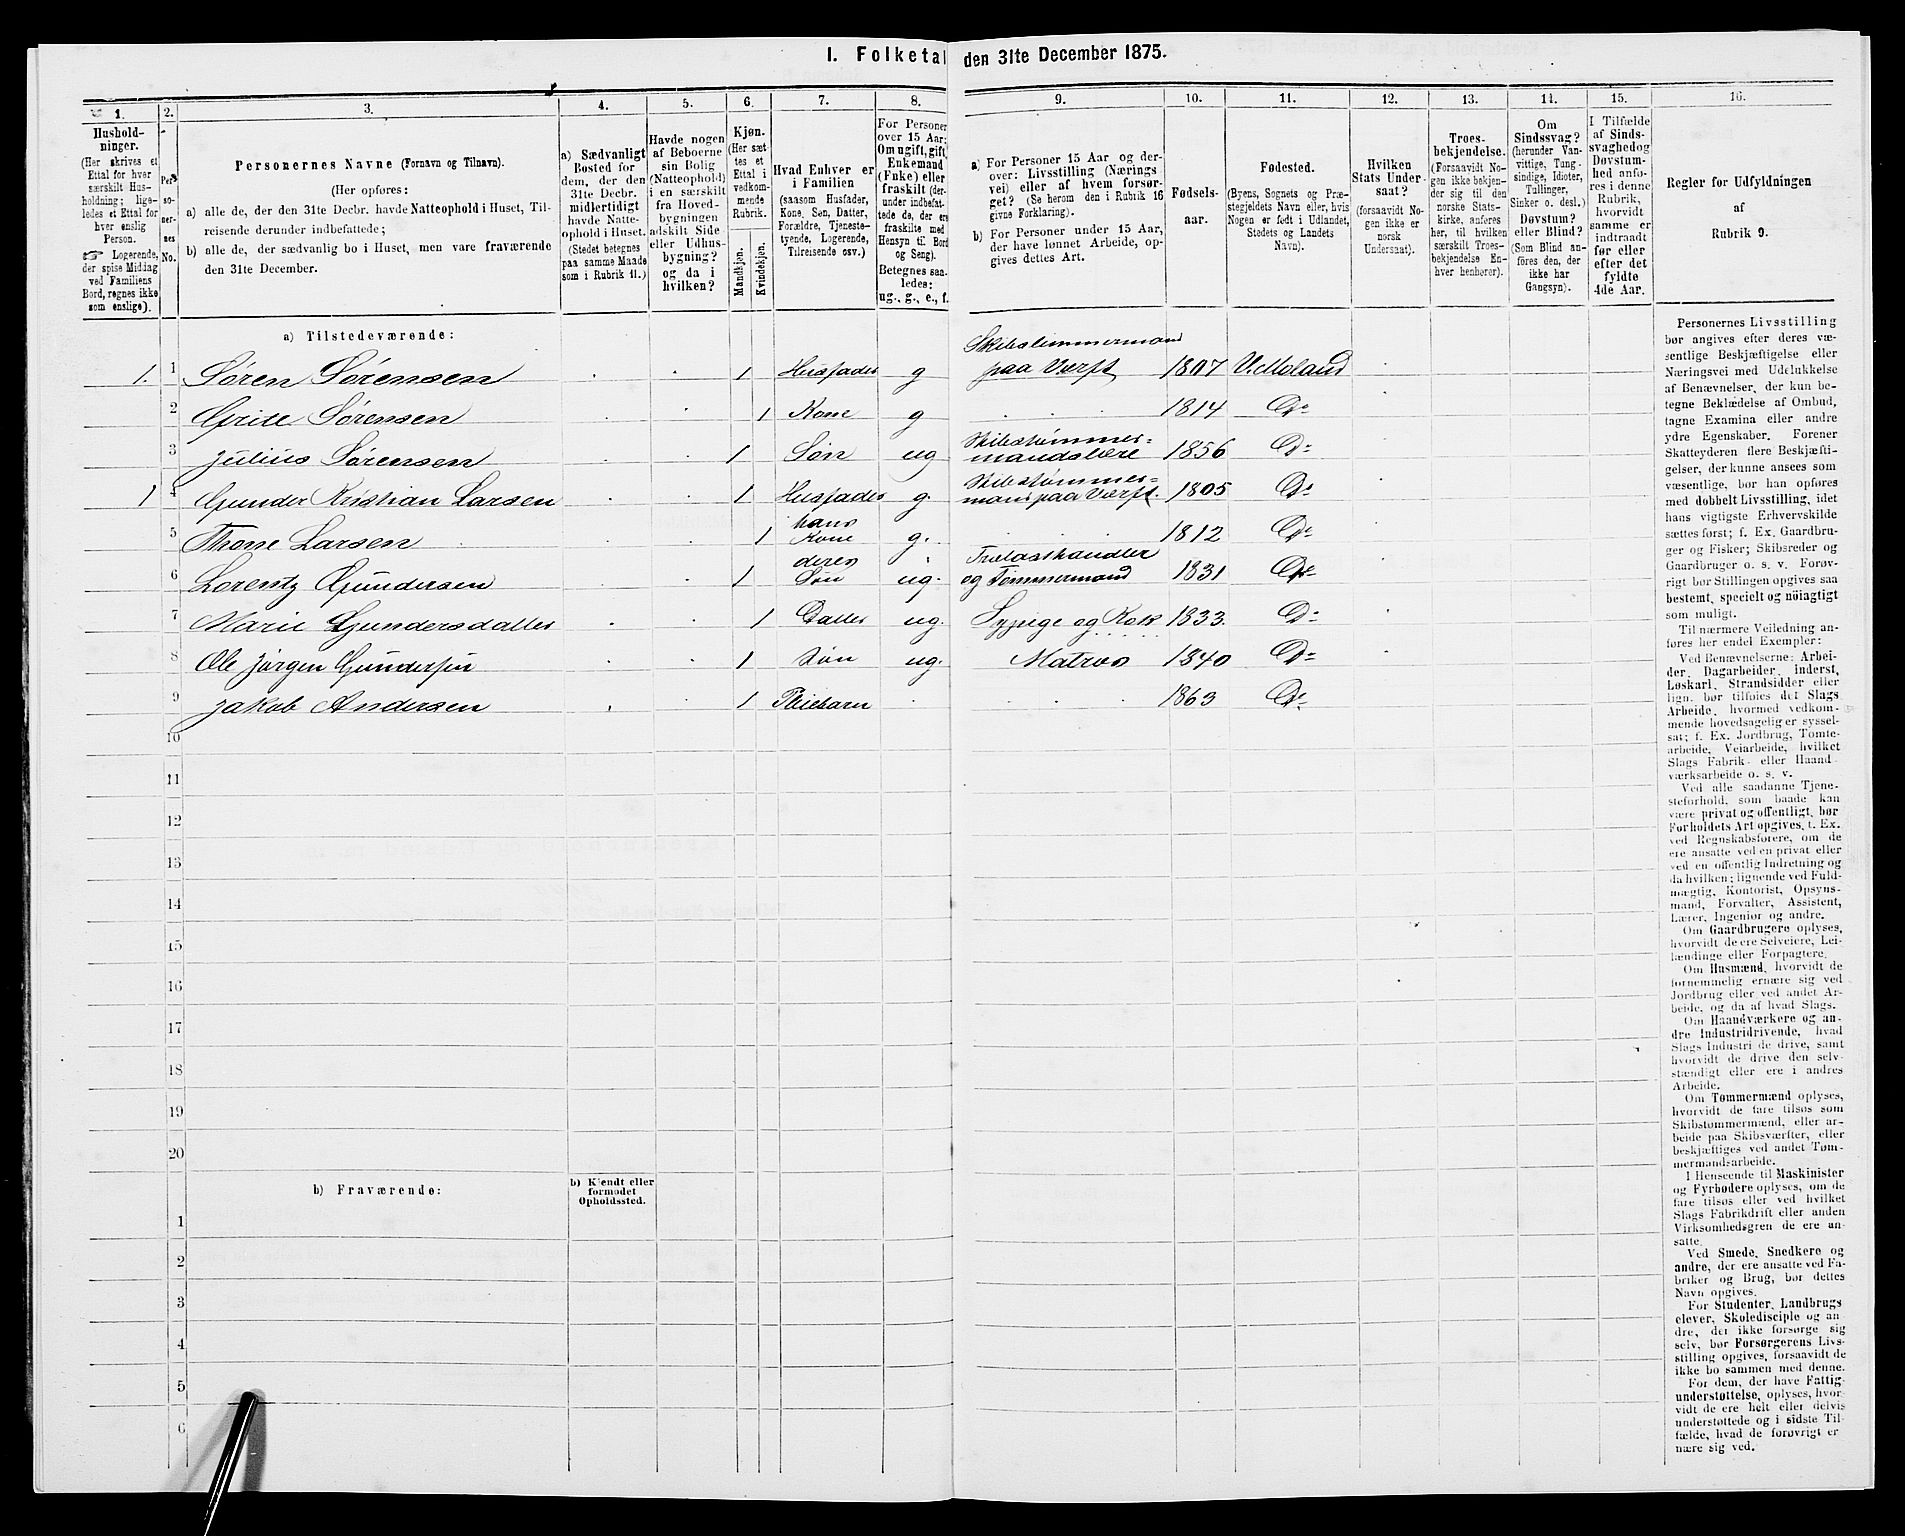 I. Folketal den 31te December 1875.
1.
Hushold-
ninger.
(Her skrives et
Ettal for hver
særskilt Hus-
holdning; lige-
ledes et Ettal for
hver enslig
Person.
☞ Logerende,
der spise Middag
ved Familiens
Bord, regnes ikke
som enslige).
2.
Per-
so-
ner-
nes
No.
3.
Personernes Navne (Fornavn og Tilnavn).
(Her opføres:
a) alle de, der den 31te Decbr. havde Natteophold i Huset, Til-
reisende derunder indbefattede;
b) alle de, der sædvanlig bo i Huset, men vare fraværende
den 31te December.
4.
a) Sædvanligt
Bosted for
dem, der den
31te Decbr.
midlertidigt
havde Natte-
ophold i Huset.
(Stedet betegnes
paa samme Maade
som i Rubrik 11.)
5.
Havde nogen
af Beboerne
sin Bolig
(Natteophold)
i en særskilt
fra Hoved-
bygningen
adskilt Side
eller Udhus-
bygning?
og da i
hvilken?
6.
Kjøn.
(Her sæt-
tes et
Ettal i
vedkom-
mende
Rubrik.
Mandkjøn.
Kvindekjøn.
7.
Hvad Enhver er
i Familien
(saasom Husfader,
Kone, Søn, Datter,
Forældre, Tjeneste-
tyende, Logerende,
Tilreisende osv.)
8.
For Personer
over 15 Aar:
Om ugift, gift,
Enkemand
(Enke) eller
fraskilt (der-
under indbefat-
tede de, der ere
fraskilte med
Hensyn til Bord
og Seng).
Betegnes saa-
ledes:
ug., g., e., f.
9.
a) For Personer 15 Aar og der-
over: Livsstilling (Nærings-
vei) eller af hvem forsør-
get? (Se herom den i Rubrik 16
givne Forklaring).
b) For Personer under 15 Aar,
der have lønnet Arbeide, op-
gives dettes Art.
10.
Fødsels-
aar.
11.
Fødested.
(Byens, Sognets og Præ-
stegjeldets Navn eller, hvis
Nogen er født i Udlandet,
Stedets og Landets
Navn).
12.
Hvilken
Stats Under-
saat?
(forsaavidt No-
gen ikke er
norsk
Undersaat).
13.
Troes-
bekjendelse.
(Forsaavidt No-
gen ikke bekjen-
der sig til den
norske Stats-
kirke, anføres
her, til hvilken
særskilt Troes-
bekjendelse En-
hver henhører).
14.
Om
Sindssvag?
(herunder Van-
vittige, Tung-
sindige, Idioter,
Tullinger,
Sinker o. desl.)
Døvstum?
eller Blind?
(Som Blind an-
føres den, der
ikke har
Gangsyn).
15.
I Tilfælde
af Sinds-
svaghed og
Døvstum-
hed anfø-
res i denne
Rubrik,
hvorvidt
samme er
indtraadt
før eller
efter det
fyldte
4de Aar.
16.
Regler for Udfyldningen
af
Rubrik 9.
a) Tilstedeværende:
Skibstimmermand
1. 1 Søren Sørensen 1 Husfader g paa Værft 1807 V. Moland
2 Grite Sørensen 1 Kone g 1814 Do
3 Julius Sørensen 1 Søn ug Skibstømmer-
mandslære 1856 Do
1 4 Gunder Kristian Larsen 1 Husfader g. Skibstømmer-
man paa Værft. 1805 Do
5 Thone Larsen 1 hans
Kone g. 1812 Do
6 Lorentz Gundersen 1 deres
Søn ug. Trælasthandler
og Tømmermand 1831 Do
7 Marie Gundersdatter 1 Datter ug. Sypige og Kok 1833. Do
8 Ole Jørgen Gundersen 1 Søn ug. Matros 1840 Do
9 Jakob Andersen 1 Pleiebarn 1863 Do
10
11
12
13
14
15
16
17
18
19
20
b) Fraværende:
b) Kjendt eller
formodet
Opholdssted.
1
2
3
4
5
6
Personernes Livsstilling
bør angives efter deres væ-
sentlige Beskjæftigelse eller
Næringsvei med Udelukkelse
af Benævnelser, der kun be-
tegne Beklædelse af Ombud,
tagne Examina eller andre
ydre Egenskaber. Forener
Skatteyderen flere Beskjæfti-
gelser, der kunne ansees som
væsentlige, bør han opføres
med dobbelt Livsstilling, idet
hans vigtigste Erhvervskilde
sættes først; f. Ex. Gaardbru-
ger og Fisker; Skibsreder og
Gaardbruger o. s. v. Forøv-
rigt bør Stillingen opgives saa
bestemt, specielt og nöiagtigt
som muligt.
Til nærmere Veiledning an-
føres her endel Exempler:
Ved Benævnelserne: Arbei-
der, Dagarbeider, inderst,
Løskarl, Strandsidder eller
lign. bør tilføies det Slags
Arbeide, hvormed vedkom-
mende hovedsagelig er syssel-
sat; f. Ex. Jordbrug, Tomte-
arbeide, Veiarbeide, hvilket
Slags Fabrik- eller Haand-
værksarbeide o. s. v.
Ved alle saadanne Tjene-
steforhold, som baade kan
være privat og offentligt, bør
Forholdets Art opgives, t. Ex.
ved Regnskabsførere, om de
ere ansatte ved en privat eller
ved en offentlig Indretning og
da hvilken; lignende ved Fuld-
mægtig, Kontorist, Opsyns-
mand, Forvalter, Assistent,
Lærer, Ingeniør og andre.
Om Gaardbrugere oplyses,
hvorvidt de ere Selveiere, Lei-
lændinge eller Forpagtere.
Om Husmænd, hvorvidt de
fornemmelig ernære sig ved
Jordbrug eller ved andet Ar-
beide, og da af hvad Slags.
Om Haandværkere og an-
dre Industridrivende, hvad
Slags Industri de drive, samt
hvorvidt de drive den selv-
stændigt eller ere i andres
Arbeide.
Om Tømmermænd oplyses,
hvorvidt de fare tilsøs som
Skibstømmermænd, eller ar-
beide paa Skibsværfter, eller
beskjæftiges ved andet Tøm-
mermandsarbeide.
I Henseende til Maskinister
og Fyrbødere oplyses, om de
fare tilsøs eller ved hvilket
Slags Fabrikdrift eller anden
Virksomhedsgren de ere an-
satte.
Ved Smede, Snedkere og
andre, der ere ansatte ved Fa-
briker og Brug, bør dettes
Navn opgives.
For Studenter, Landbrugs-
elever, Skoledisciple og an-
dre, der ikke forsørge sig
selv, bør Forsørgerens Livs-
stilling opgives, forsaavidt de
ikke bo sammen med denne.
For dem, der have Fattig-
understøttelse, oplyses, hvor-
vidt de ere helt eller delvis
understøttede og i sidste Til-
fælde, hvad de forøvrigt er-
nære sig ved.